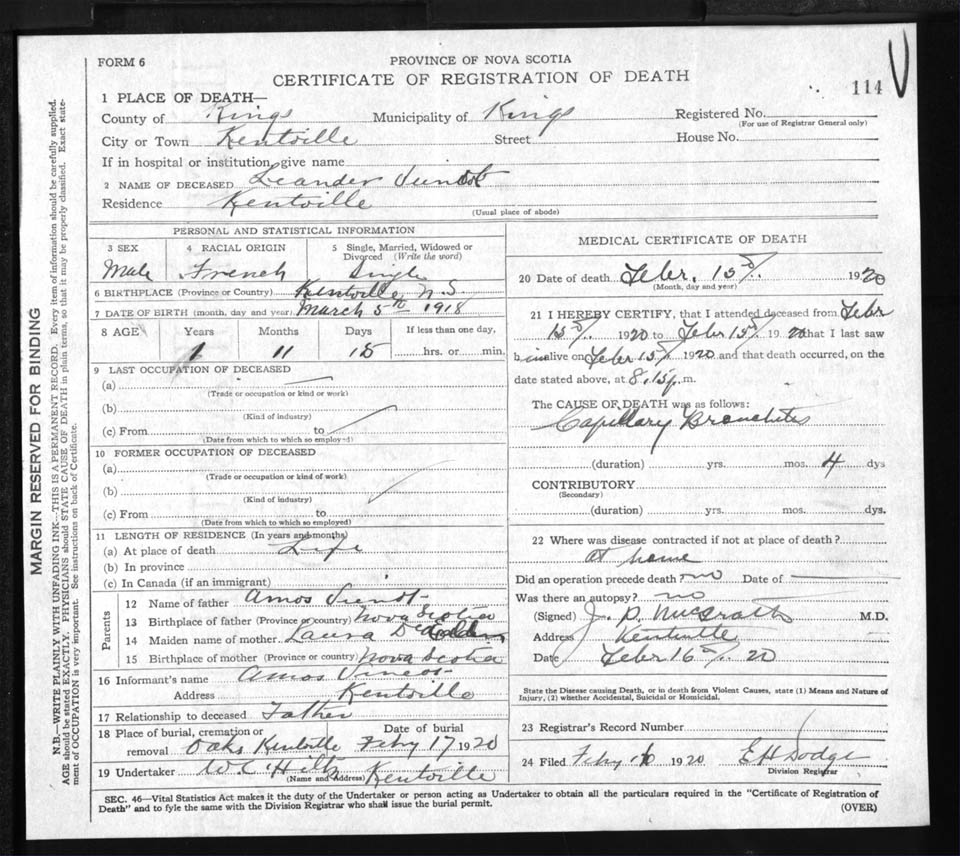 FORM 6
PROVINCE OF NOVA SCOTIA
CERTIFICATE OF REGISTRATION OF DEATH
114
1 PLACE OF DEATH—
County of Kings Municipality of Kings Registered No.
(For use of Registrar General only)
City or Town Kentville Street House No.
If in hospital or institution, give name
2 NAME OF DECEASED Leander
Residence Kentville
(Usual place of abode)
PERSONAL AND STATISTICAL INFORMATION
3 SEX 4 RACIAL ORIGIN 5 Single, Married, Widowed or Divorced (Write the word)
Male French Single
6 BIRTHPLACE (Province or Country) Kentville, N.S.
7 DATE OF BIRTH (month, day and year) March 5th 1918
8 AGE Years Months Days If less than one day,
1 11 15 hrs. or min.
9 LAST OCCUPATION OF DECEASED
(a)
(Trade or occupation or kind or work)
(b)
(Kind of industry)
(c) From to
(Date from which to which so employed)
10 FORMER OCCUPATION OF DECEASED
(a)
(Trade or occupation or kind of work)
(b)
(Kind of industry)
(c) From to
(Date from which to which so employed)
11 LENGTH OF RESIDENCE (In years and months)
(a) At place of death Life
(b) In province
(c) In Canada (if an immigrant)
Parents
12 Name of father Amos
13 Birthplace of father (Province or country) Nova Scotia
14 Maiden name of mother Laura
15 Birthplace of mother (Province or country) Nova Scotia
16 Informant's name Amos
Address Kentville
17 Relationship to deceased Father
18 Place of burial, cremation or removal Date of burial
Oaks Kentville Feby 17 1920
19 Undertaker W C Hiltz Kentville
(Name and Address)
MEDICAL CERTIFICATE OF DEATH
20 Date of death Febr. 15 1920
(Month, day and year)
21 I HEREBY CERTIFY, that I attended deceased from Febr
15 1920 to Febr 15 1920 that I last saw
h im alive on Febr 15 1920 and that death occurred, on the
date stated above, at 8.15 p. m.
The CAUSE OF DEATH was as follows:
Capillary Bronchitis
(duration) yrs. mos. 4 dys
CONTRIBUTORY
(Secondary)
(duration) yrs. mos. dys.
22 Where was disease contracted if not at place of death?
At home
Did an operation precede death no Date of
Was there an autopsy? no
(Signed) J. P. McGrath M.D.
Address Kentville
Date Febr 16 20
State the Disease causing Death, or in death from Violent Causes, state (1) Means and Nature of
Injury, (2) whether Accidental, Suicidal or Homicidal.
23 Registrar's Record Number
24 Filed Feby 16 1920 E H Dodge
Division Registrar
SEC. 46—Vital Statistics Act makes it the duty of the Undertaker or person acting as Undertaker to obtain all the particulars required in the "Certificate of Registration of
Death" and to fyle the same with the Division Registrar who shall issue the burial permit.
(OVER)
MARGIN RESERVED FOR BINDING
N.B.—WRITE PLAINLY WITH UNFADING INK—THIS IS A PERMANENT RECORD. Every item of information should be carefully supplied.
AGE should be stated EXACTLY. PHYSICIANS should STATE CAUSE OF DEATH in plain terms, so that it may be properly classified. Exact state-
ment of OCCUPATION is very important. See instructions on back of Certificate.